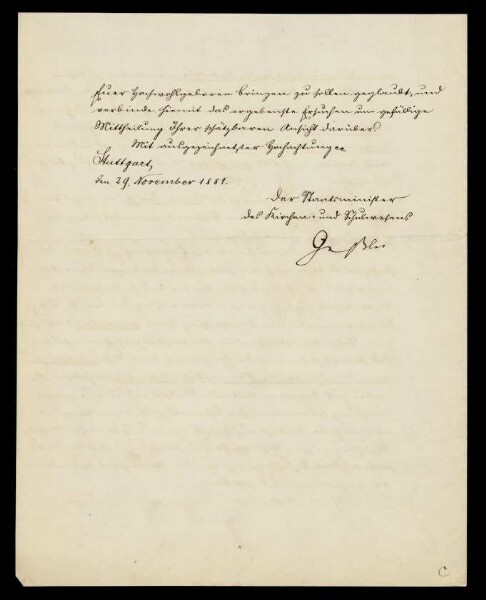 Euer Hochwohlgeboren bringen zu sollen geglaubt, und
verbinde hiemit das ergebenste Ersuchen um gefällige
Mittheilung Ihrer schätzbaren Ansicht darüber.
Mit ausgezeichnetster Hochachtung
Stuttgart,
den 29. November 1881.
Der Staatsminister
des Kirchen- und Schulwesens
Geßler
C